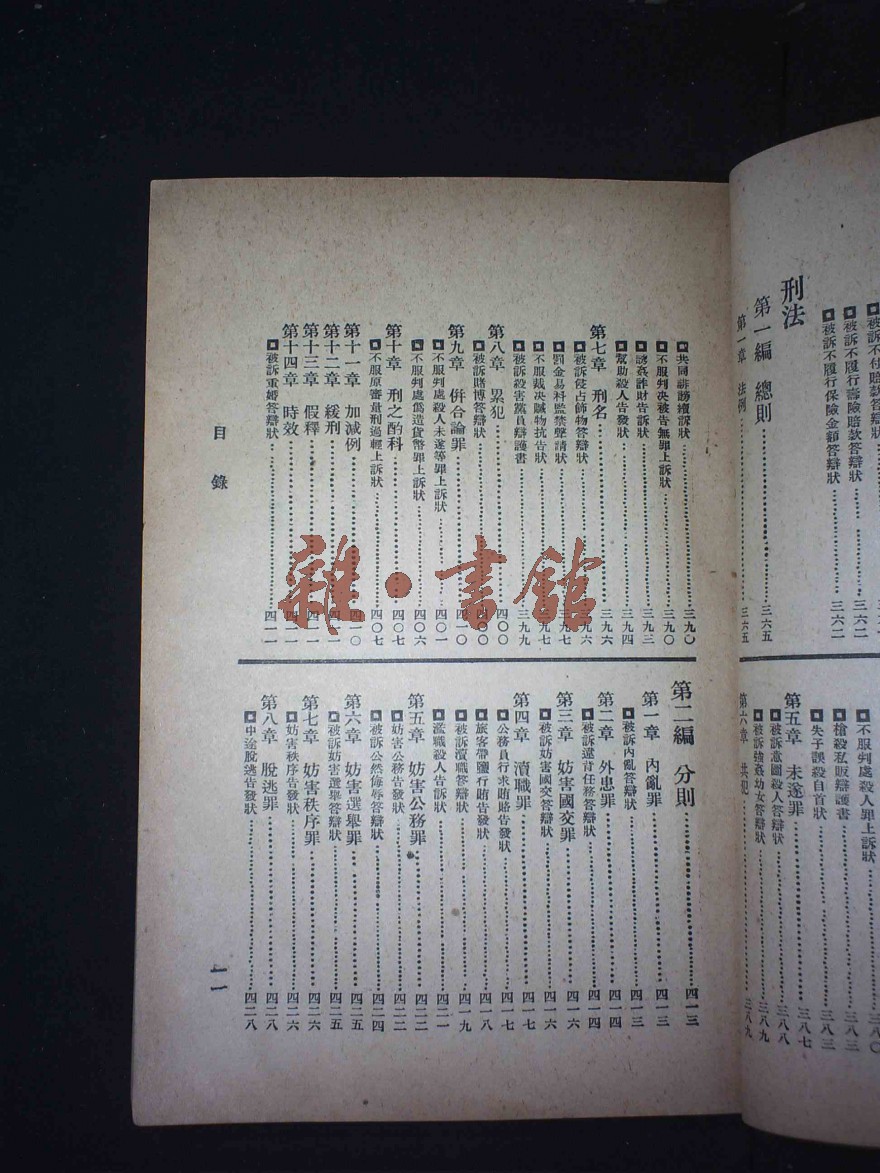 被訴不付賠款答辯狀
被訴不履行壽險賠款答辯狀……三六二
被訴不履行保險金額答辯狀……三六二
刑法
第一編 總則……三六五
第一章 法例……三六五
不服判處殺人罪上訴狀……三八〇
槍殺私販辯護書……三八二
失子誤殺自首狀……三八三
第五章 未遂罪……三八七
被訴意圖殺人答辯狀……三八八
被訴強姦幼女答辯狀……三八九
第六章 共犯……三八九
共同誹謗續訴狀……三九〇
不服判决被告無罪上訴狀……三九〇
誘姦詐財告訴狀……三九三
幫助殺人告發狀……三九四
第七章 刑名……三九六
被訴侵占飾物答辯狀……三九六
罰金易科監禁聲請狀……三九七
不服裁决贓物抗告狀……三九七
被訴殺害黨員辯護書……三九九
第八章 累犯……四〇〇
被訴賭博答辯狀……四〇〇
第九章 併合論罪……四〇〇
不服判處殺人未遂等罪上訴狀……四〇一
不服判處僞造貨幣罪上訴狀……四〇六
第十章 刑之酌科……四〇七
不服原審量刑過輕上訴狀……四〇七
第十一章 加減例……四一〇
第十二章 緩刑……四一一
第十三章 假釋……四一一
第十四章 時效……四一一
被訴重婚答辯狀……四一一
第二編 分則……四一三
第一章 內亂罪……四一三
被訴內亂答辯狀……四一三
第二章 外患罪……四一四
被訴違背任務答辯狀……四一四
第三章 妨害國交罪……四一六
被訴妨害國交答辯狀……四一六
第四章 瀆職罪……四一七
公務員行求賄賂告發狀……四一七
旅客帶鹽行賄告發狀……四一八
被訴瀆職答辯狀……四一九
濫職殺人告訴狀……四二一
第五章 妨害公務罪……四二二
妨害公務告發狀……四二二
被訴公然侮辱答辯狀……四二四
第六章 妨害選舉罪……四二五
被訴妨害選舉答辯狀……四二五
第七章 妨害秩序罪……四二六
妨害秩序告發狀……四二六
第八章 脫逃罪……四二八
中途脫逃告發狀……四二八
目錄
一一
雜·書館